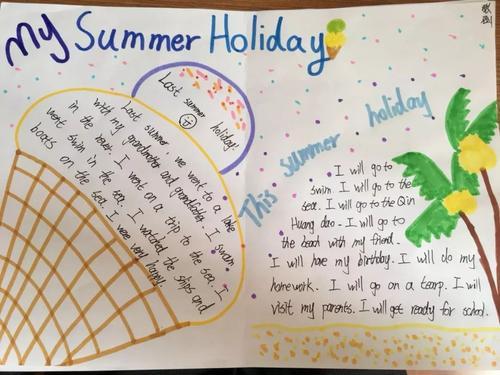 My Summer Holiday
Last summer holiday.
Last summer, we went to a lake
with my grandmother and grandfather. I swam
in the river. I went on a trip to the sea. I
went swim in the tea. I watched the ships and
boats on the sea. I were very happy.
This summer holiday
I will go to
swim. I will go to the
sea. I will go to the Qin
Huang dao. I will go to
the beach with my friend.
I will have my birthday. I will do my
homework. I will go on a tearp. I will
visit my parents. I will get ready for school.